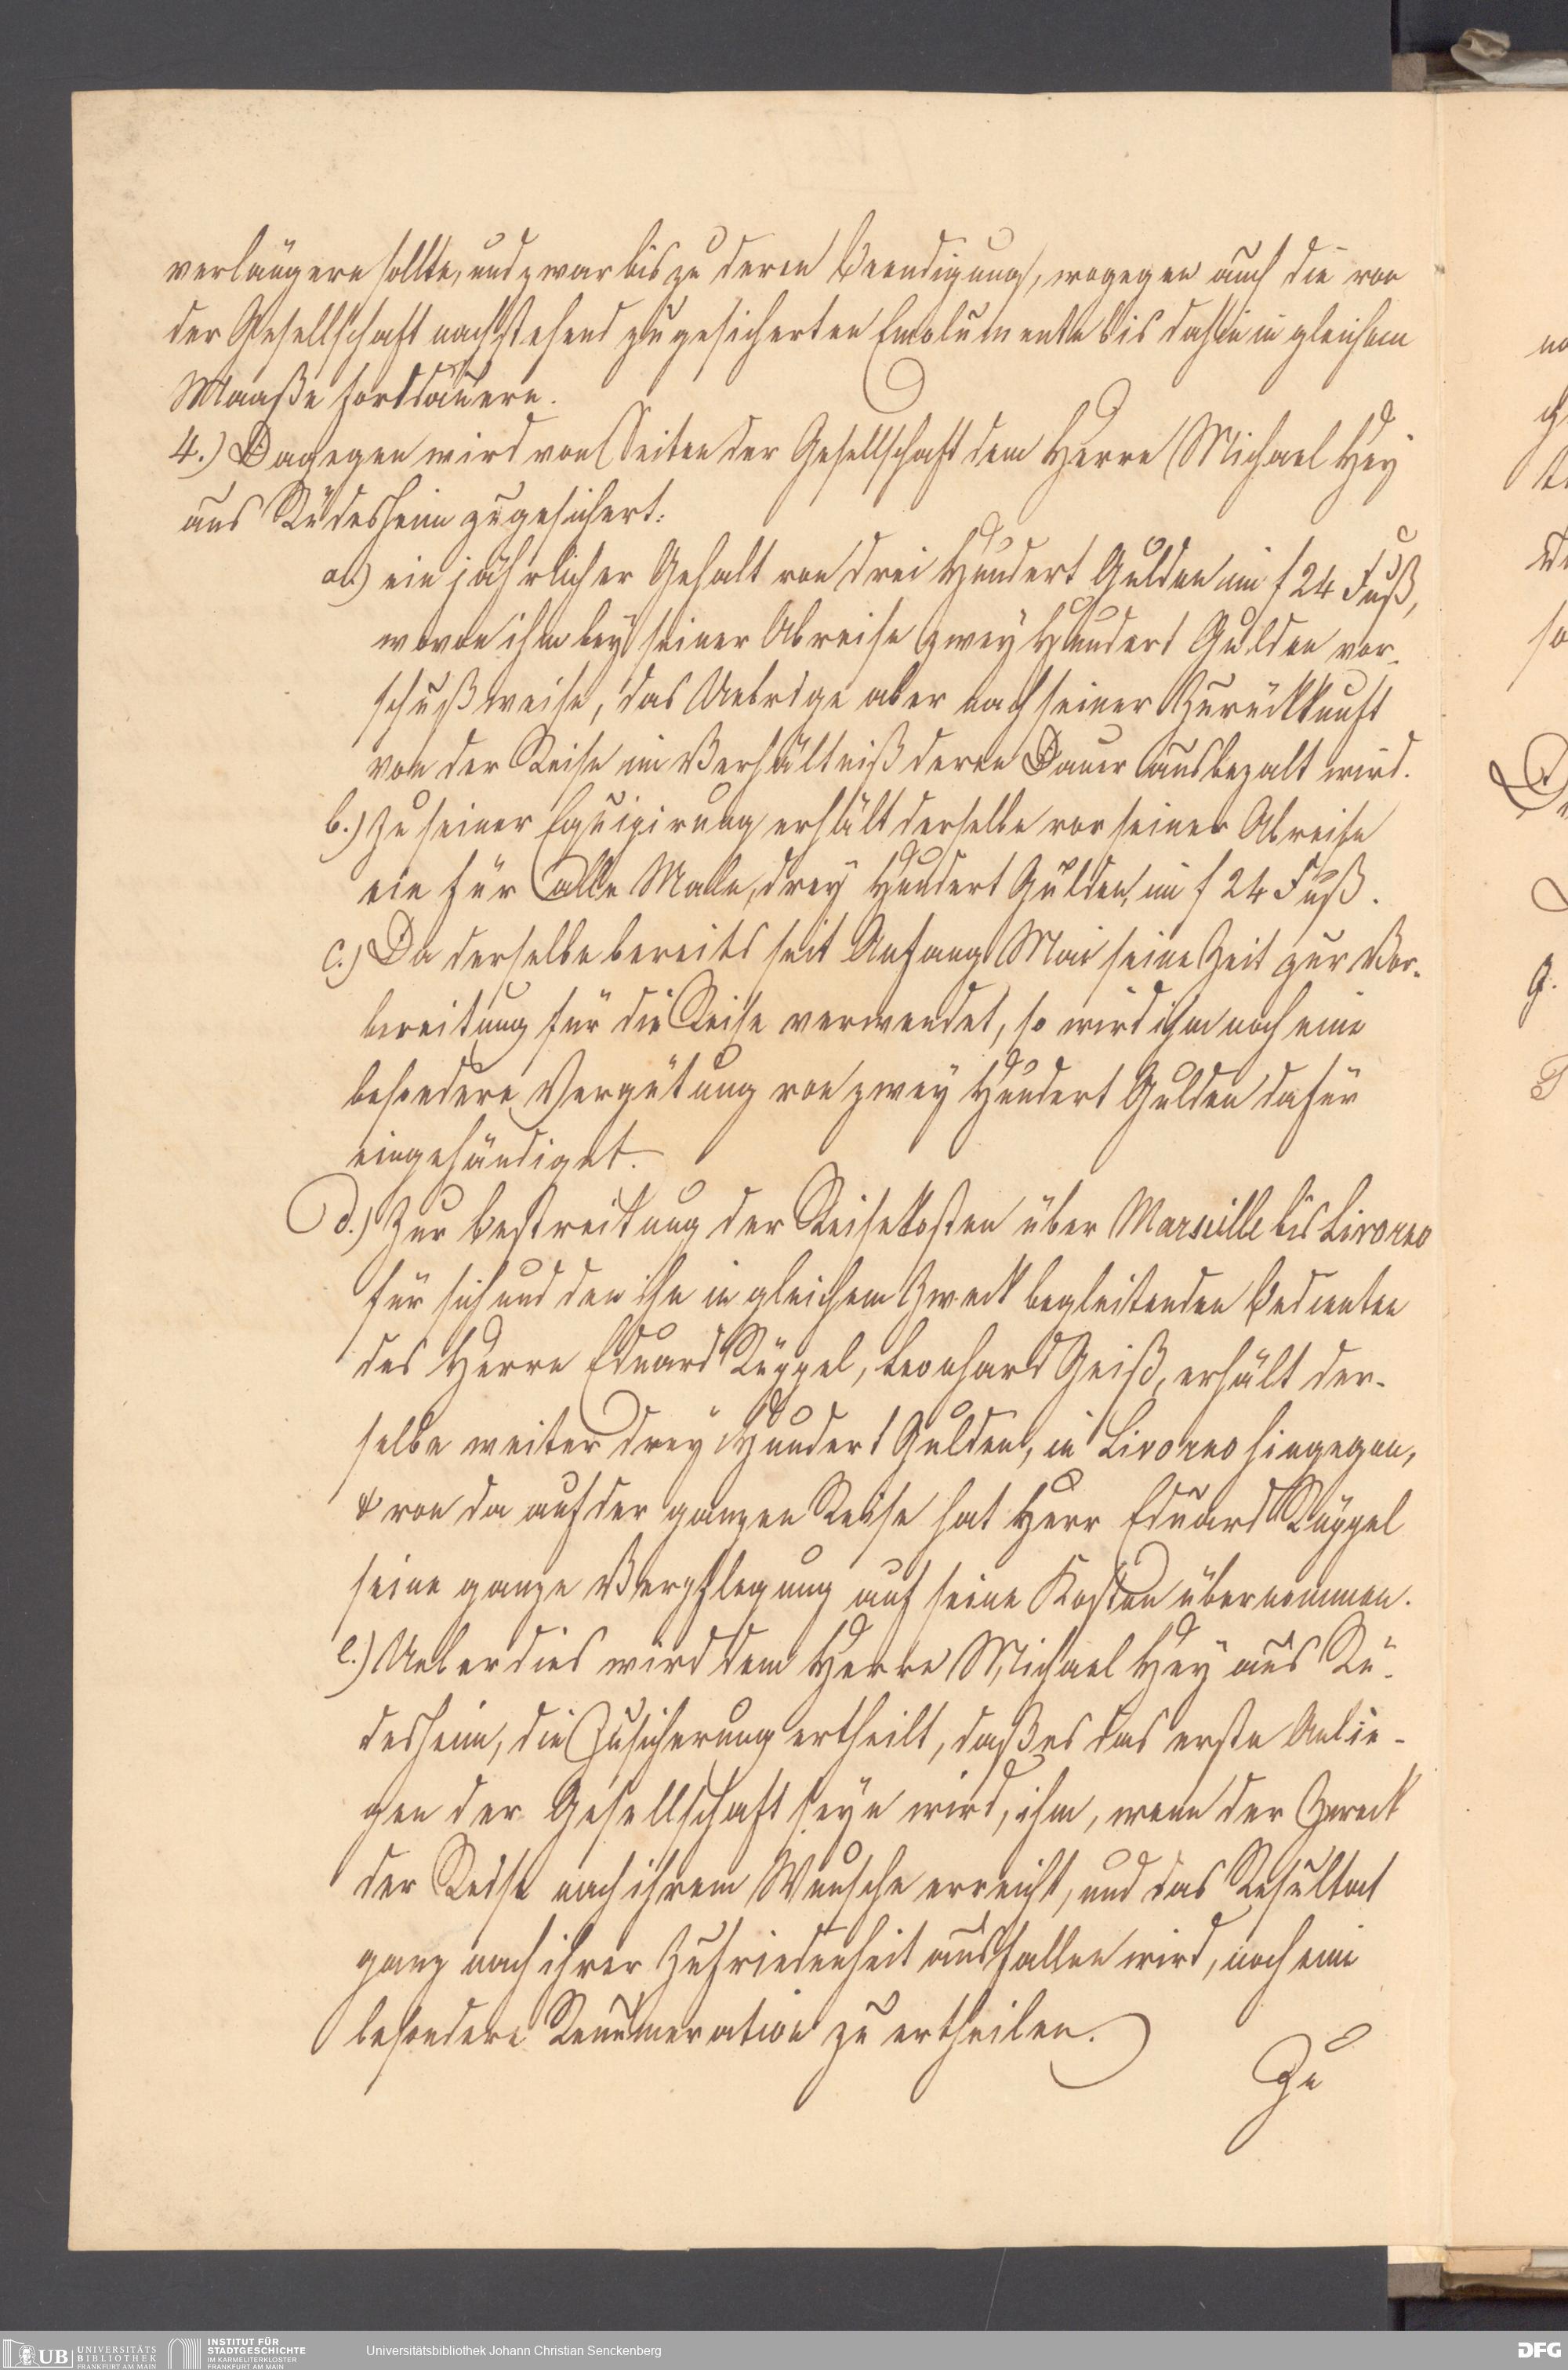 verlängern sollte, und zwar bis zu deren Beendigung, wogegen auch die von
der Gesellschaft nachstehend zugesicherten Emolumente bis dahin in gleichem
Maaße fortdauern.
4.) Dagegen wird von Seiten der Gesellschaft dem Herrn Michael Hey
aus Rüdesheim zugesichert:
a.) ein jährlicher Gehalt von drei Hundert Gulden im f 24 Fuß,
wovon ihm bey seiner Abreise zwey Hundert Gulden vor-
schußweise, das Uebrige aber nach seiner Zurückkunft
von der Reise im Verhältniß deren Dauer ausbezalt wird.
b.) Zu seiner Equipirung erhält derselbe vor seiner Abreise
ein für alle Male, drey Hundert Gulden, im f 24 Fuß.
c.) Da derselbe bereits seit Anfang Mai seine Zeit zur Vor-
bereitung für die Reise verwendet, so wird ihm noch eine
besondere Vergütung von zwey Hundert Gulden dafür
eingehändiget.
d.) Zur Bestreitung der Reisekosten über Marseille bis Livorno
für sich und den ihn in gleichem Zweck begleitenden Bedienten
des Herrn Eduard Rüppel, Leonhard Geiß, erhält der-
selbe weiter drey Hundert Gulden, in Livorno hingegen,
& von da auf der ganzen Reise hat Herr Eduard Rüppel
seine ganze Verpflegung auf seine Kosten übernommen.
e.) Ueberdies wird dem Herrn Michael Hey aus Rü-
desheim, die Zusicherung ertheilt, daß es das erste Anlie-
gen der Gesellschaft seyn wird, ihm, wenn der Zweck
der Reise nach ihrem Wunsche erreicht, und das Resultat
ganz nach ihrer Zufriedenheit ausfallen wird, noch eine
besondere Renumeration zu ertheilen.
Zu
UB UNIVERSITÄTS
BIBLIOTHEK
FRANKFURT AM MAIN
INSTITUT FÜR
STADTGESCHICHTE
IM KARMELITERKLOSTER
FRANKFURT AM MAIN
Universitätsbibliothek Johann Christian Senckenberg
DFG